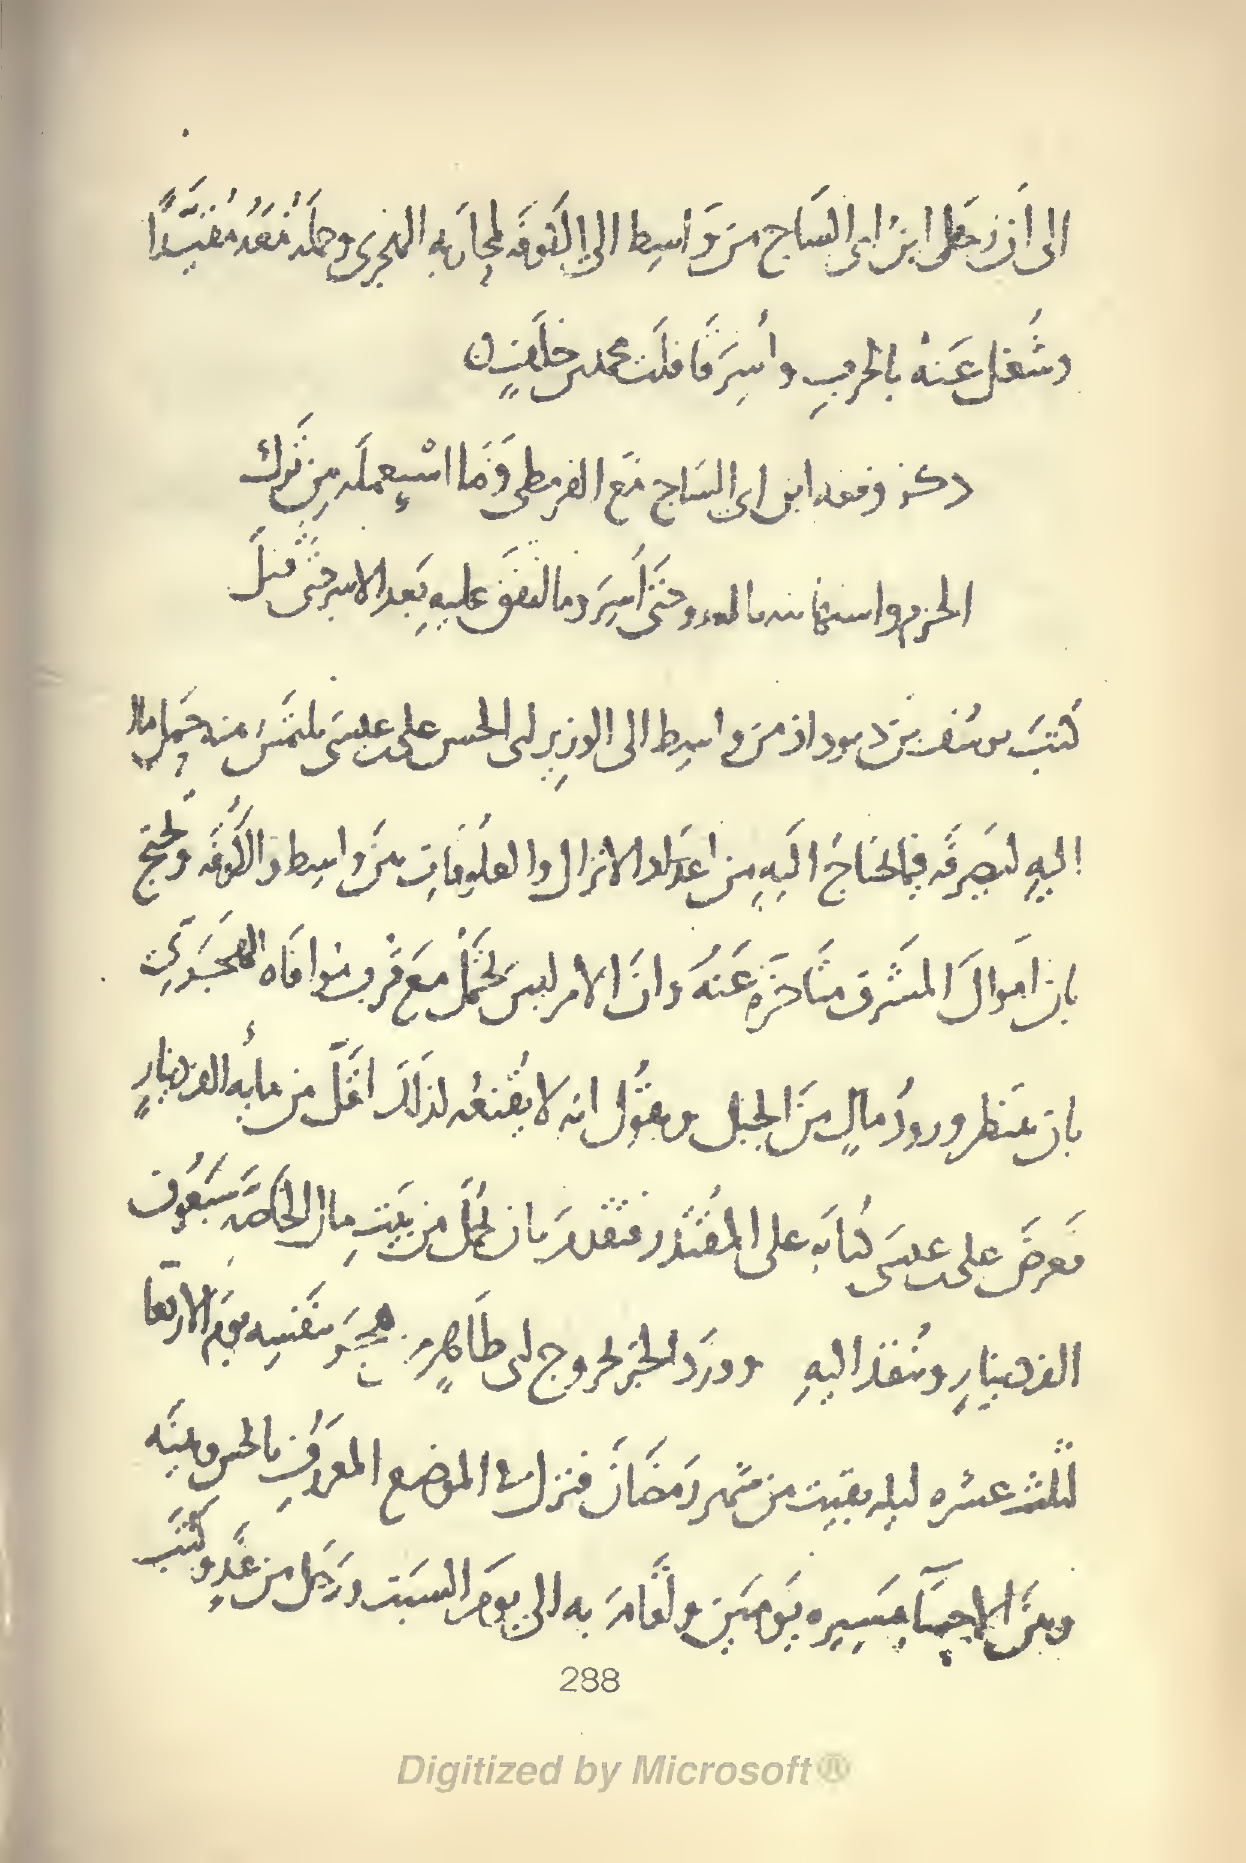 الى أن رحل ابن ابى الساج من واسط الى الكوفة لمحاربة الهجرى وحمله معه مقيداً
وشُغل عنه بالحرب وأُسر فافلت محمد بن خلف
ذكر وقعة ابن ابى الساج مع القرمطى وما استعمله من ترك
الحزم واستهانته بالعدو حتى أُسر وما اتفق عليه بعد الاسر حتى قتل
كتب يوسف بن ديوداذ من واسط الى الوزير ابى الحسن على بن عيسى يلتمس منه حمل مال
اليه ليصرفه فيما يحتاج اليه من اعداد الانزال والعلوفات بين واسط والكوفة ويحتج
بان اموال المشرق متأخرة عنه وانّ الامر ليس يحتمل مع قرب موافاة الهجريين
بان ينتظر ورود مالٍ من الجبل ويقول انه لا يقنعه لذلك اقلّ من مائة الف دينارٍ
فعرض على بن عيسى كتابه على المقتدر فتقدم بان يحمل من بيت مال الخاصة سبعون
الف دينارٍ وتنفذ اليه وورد الخبر لخروج ابى طاهرٍ من هجر بنفسه يوم الاربعا
لثلث عشره ليله بقيت من شهر رمضان فنزل فى الموضع المعروف بالحس وبينه
وبين الاحسآ مسيره يومين واقام به الى يوم السبت ورحل من غدٍ وكتب
288
Digitized by Microsoft®